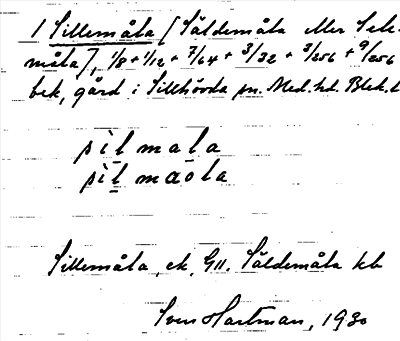 1 Sillemåla [Säldemåla eller Sele-
måla], 1/8 + 1/12 + 7/64 + 3/32 + 3/256 + 9/256
bek, gård i Sillhövda sn. Med. hd. Blek. l
sìlmala
sìlmaola
Sillemåla, ek. G11. Säldemåla kb
Sven Hartman, 1930